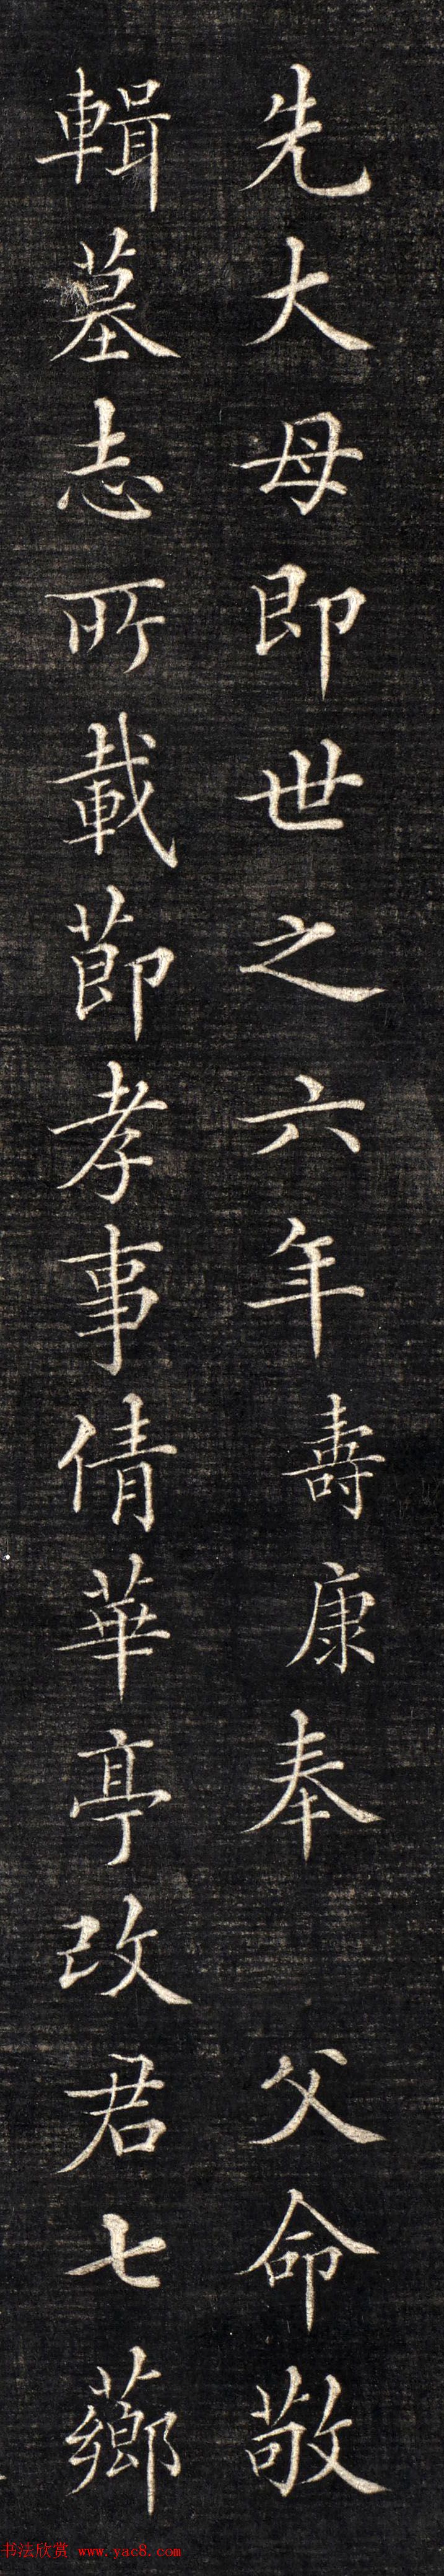 先大母即世之六年壽康奉父命敬
輯墓志所載節孝事倩華亭改君七薌
书法欣赏 www.yac8.com